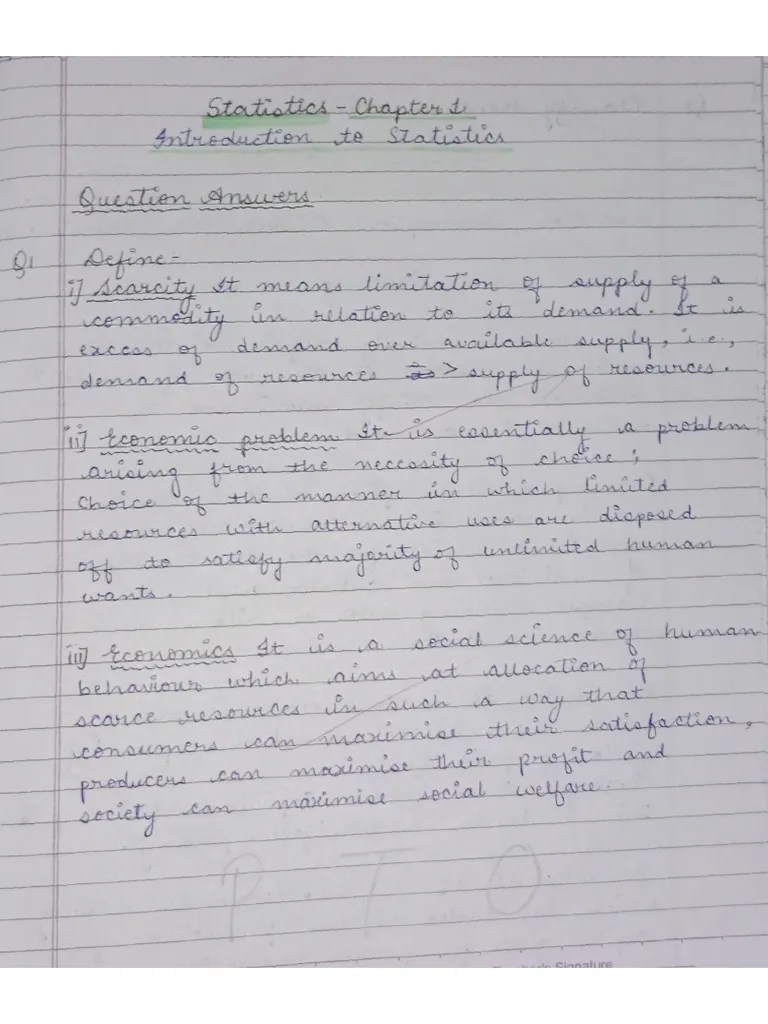 Statistics - Chapter 1
Introduction to Statistics
Question Answers
Q1 Define -
i] Scarcity It means limitation of supply of a
commodity in relation to its demand. It is
excess of demand over available supply, i.e.,
demand of resources > supply of resources.
ii] Economic problem It is essentially a problem
arising from the neccesity of choice;
Choice of the manner in which limited
resources with alternative uses are disposed
off to satisfy majority of unlimited human
wants.
iii] Economics It is a social science of human
behaviour which aims at allocation of
scarce resources in such a way that
consumers can maximise their satisfaction,
producers can maximise their profit and
society can maximise social welfare.
P.T.O.
Signature